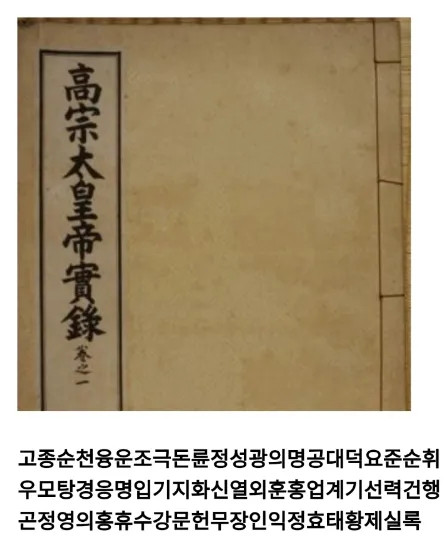 高宗太皇帝實錄
卷之一
고종순천융운조극돈륜정성광의명공대덕요준순휘
우모탕경응명입기지화신열외훈홍업계기선력건행
곤정영의홍휴수강문헌무장인익정효태황제실록